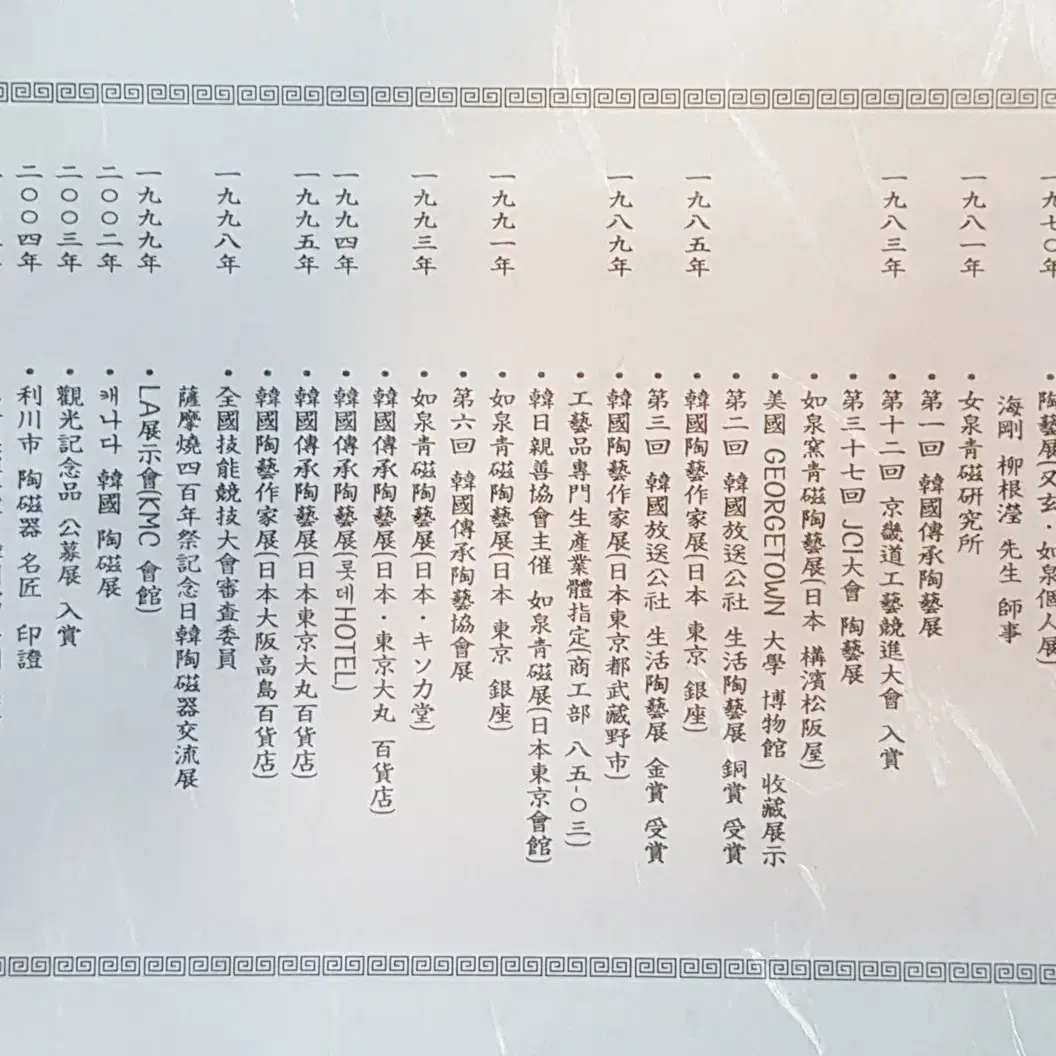 九七〇年 • 陶藝展(又玄・如泉個人展)
海剛 柳根瀅 先生 師事
一九八一年 • 女泉青磁研究所
• 第一回 韓國傳承陶藝展
一九八三年 • 第十二回 京畿道工藝競進大會 入賞
• 第三十七回 JCI大會 陶藝展
• 如泉窯青磁陶藝展(日本 構濱松阪屋)
• 美國 GEORGETOWN 大學 博物館 收藏展示
• 第二回 韓國放送公社 生活陶藝展 銅賞 受賞
一九八五年 • 韓國陶藝作家展(日本 東京 銀座)
• 第三回 韓國放送公社 生活陶藝展 金賞 受賞
一九八九年 • 韓國陶藝作家展(日本東京都武藏野市)
• 工藝品專門生產業體指定(商工部 八五-〇三)
• 韓日親善協會主催 如泉青磁展(日本東京會館)
一九九一年 • 如泉青磁陶藝展(日本 東京 銀座)
• 第六回 韓國傳承陶藝協會展
一九九三年 • 如泉青磁陶藝展(日本・キソカ堂)
• 韓國傳承陶藝展(日本・東京大丸 百貨店)
一九九四年 • 韓國傳承陶藝展(롯데HOTEL)
一九九五年 • 韓國傳承陶藝展(日本東京大丸百貨店)
• 韓國陶藝作家展(日本大阪高島百貨店)
一九九八年 • 全國技能競技大會審査委員
薩摩燒四百年祭記念日韓陶磁器交流展
一九九九年 • LA展示會(KMC 會館)
二〇〇二年 • 캐나다 韓國 陶磁展
二〇〇三年 • 觀光記念品 公募展 入賞
二〇〇四年 • 利川市 陶磁器 名匠 印證